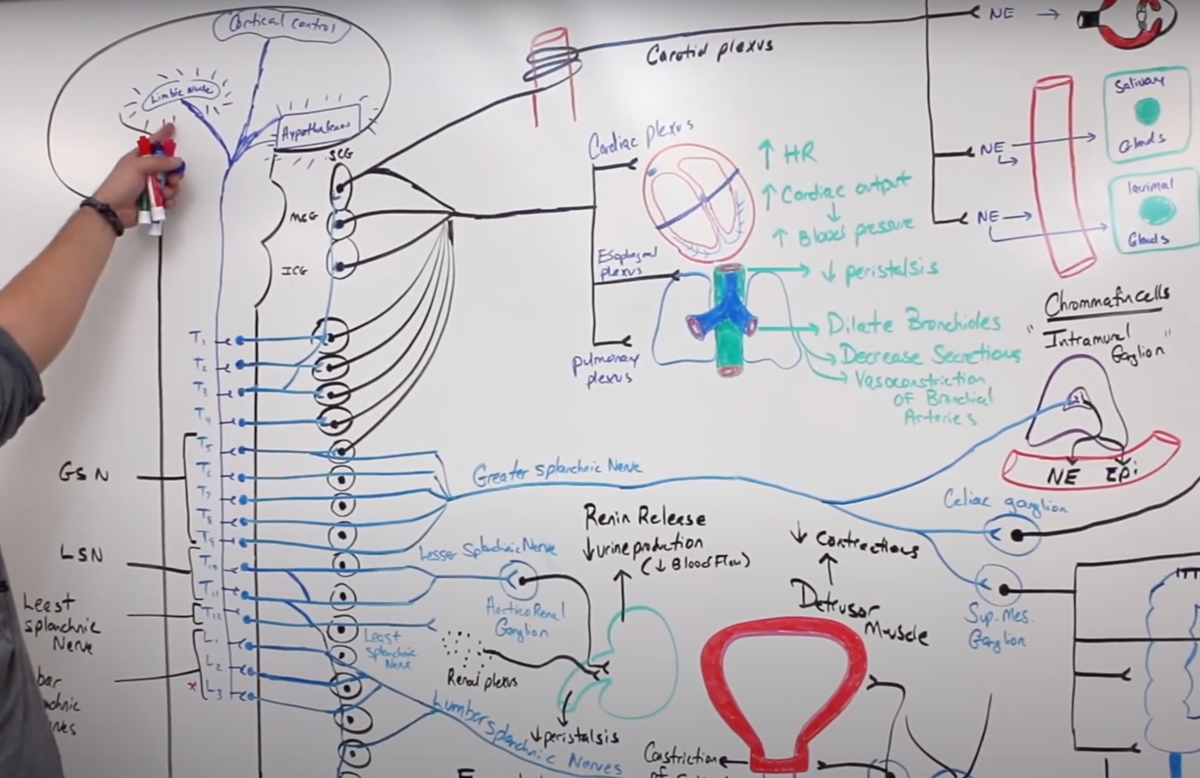 Cortical control
Limbic nuclei
Hypothalamus
SCG
MCG
ICG
T1
T2
T3
T4
T5
T6
T7
T8
T9
T10
T11
T12
L1
L2
* L3
GSN
LSN
Least
splanchnic
Nerve
Carotid plexus
NE
NE
NE
Salivary
Glands
lacrimal
Glands
Cardiac plexus
↑ HR
↑ Cardiac output
↓
↑ Blood pressure
Esophageal
plexus
↓ peristalsis
pulmonary
plexus
Dilate Bronchioles
Decrease Secretions
Vasoconstriction
of Bronchial
Arteries
Chrommafin cells
"Intramural
Ganglion"
NE EPi
Greater Splanchnic Nerve
Celiac ganglion
Sup. Mes.
Ganglion
Lesser Splanchnic Nerve
Aortico Renal
Ganglion
Least
Splanchnic
Nerve
Renal plexus
Renin Release
↓ urine production
(↓ Blood Flow)
↓ peristalsis
Lumbar Splanchnic Nerves
↓ contractions
Detrusor
Muscle
Constriction